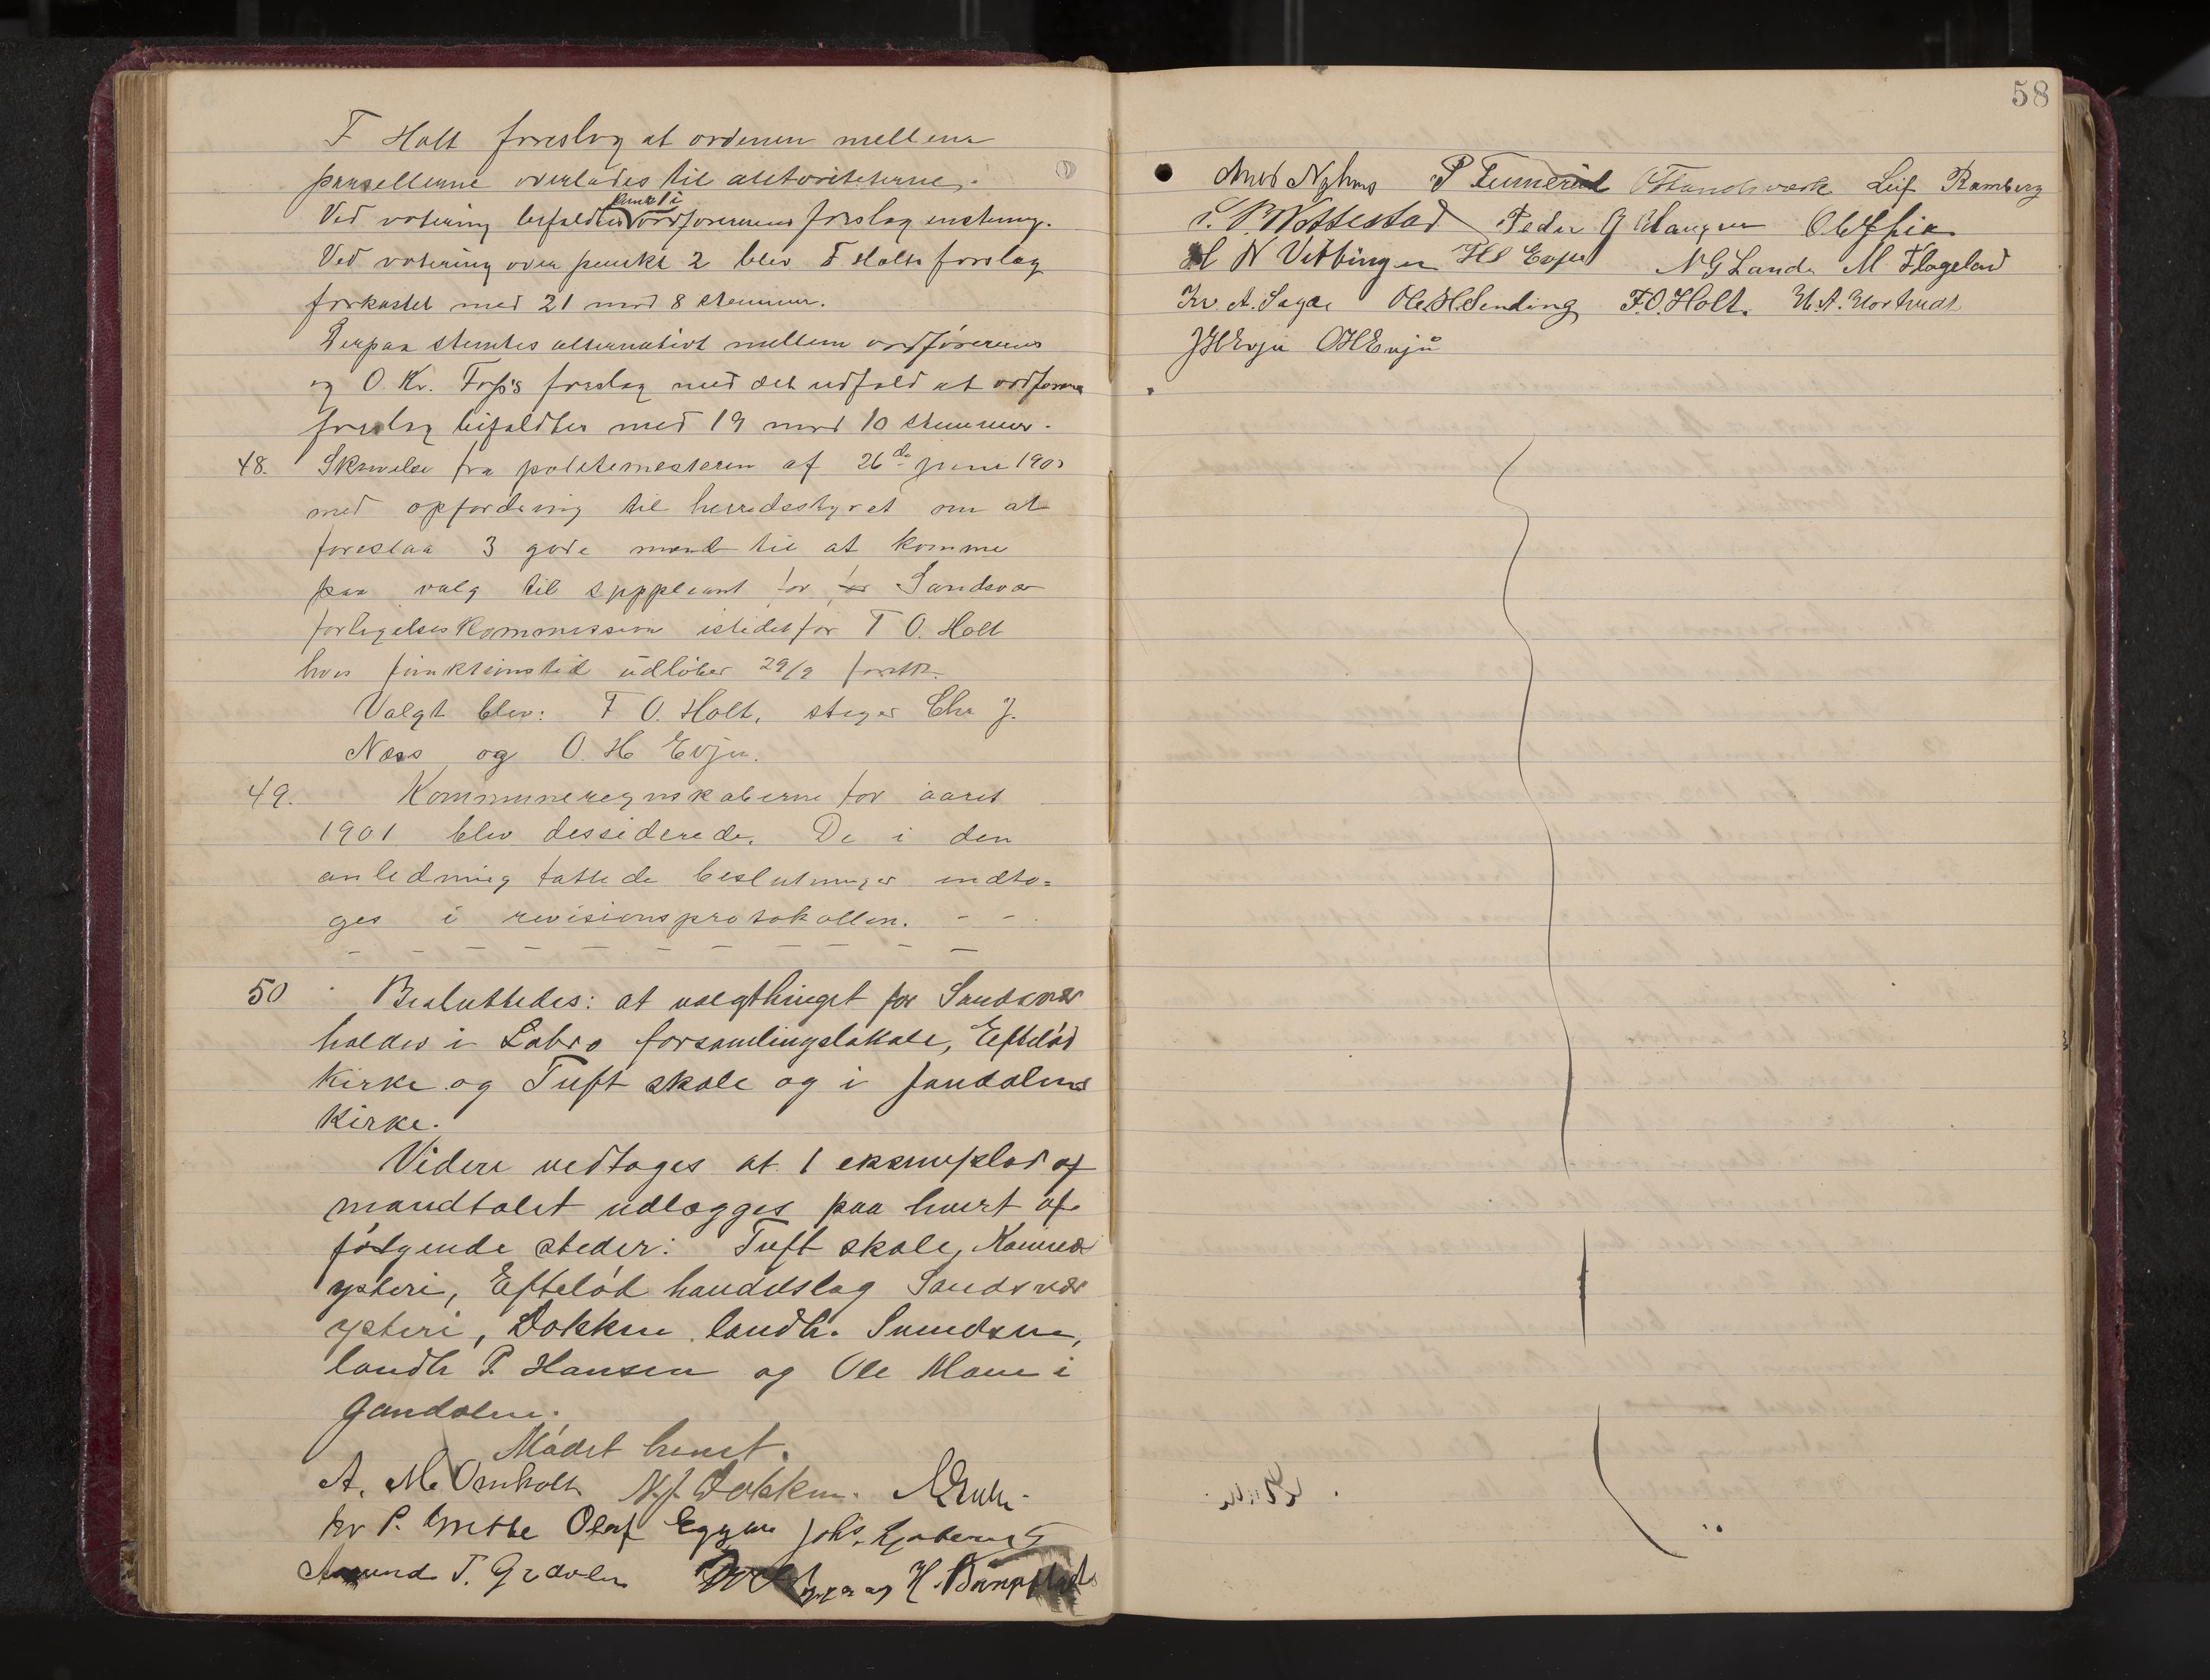 F Holt foreslog at ordenen mellem
parsellerne overlades til autoriteterne.
punkt i
Ved votering bifaldtes ordførerens forslag enstemg.
Ved votering over punkt 2 blev F Holts forslag
forkastet med 21 mod 8 stemmer.
Derpaa stemtes alternativt mellem ordførerens
og O. Kr. Foss's forslag med det udfald at ordførerens
forslag bifaldtes med 19 mod 10 stemmer.
48. Skrivelse fra politimesteren af 26de juni 1902
med opfordring til herredsstyret om at
foreslaa 3 gode mænd til at komme
paa valg til suppleant for for Sandsvær
forligelseskommission istedetfor F O. Holt
hvis funktionstid udløber 29/9 førstk.
Valgt blev: F O. Holt, stiger Chr J.
Næss og O. H Evju.
49. Kommuneregnskaberne for aaret
1901 blev dessiderede. De i den
anledning fattede beslutninger indto=
ges i revisionsprotokollen. - -
50 Besluttedes: at valgthinget for Sandsvær
holdes i Labro forsamlingslokale, Efteløt
kirke og Tuft skole og i Jondalens
kirke.
Videre vedtoges at 1 eksemplar af
mandtalet udlægges paa hvert af
følgende steder: Tuft skole, Komnes
ysteri, Efteløt handelslag Sandsvær
ysteri, Dokken landh. Svendsen,
landh P. Hansen og Ole Moen i
Jondalen.
Mødet hævet.
A. M. Omholt N. J. Dokken.
Kr P. Grette Olaf Eggen Johs.
Amund T. H.
58
P Leif Ramberg
Wottestad Peder G
H N Vittingen H S Evju N G Lande M Flageland
Kr. A. Sagen Ole H. Sending F. O. Holt.
J H Evju O H Evju